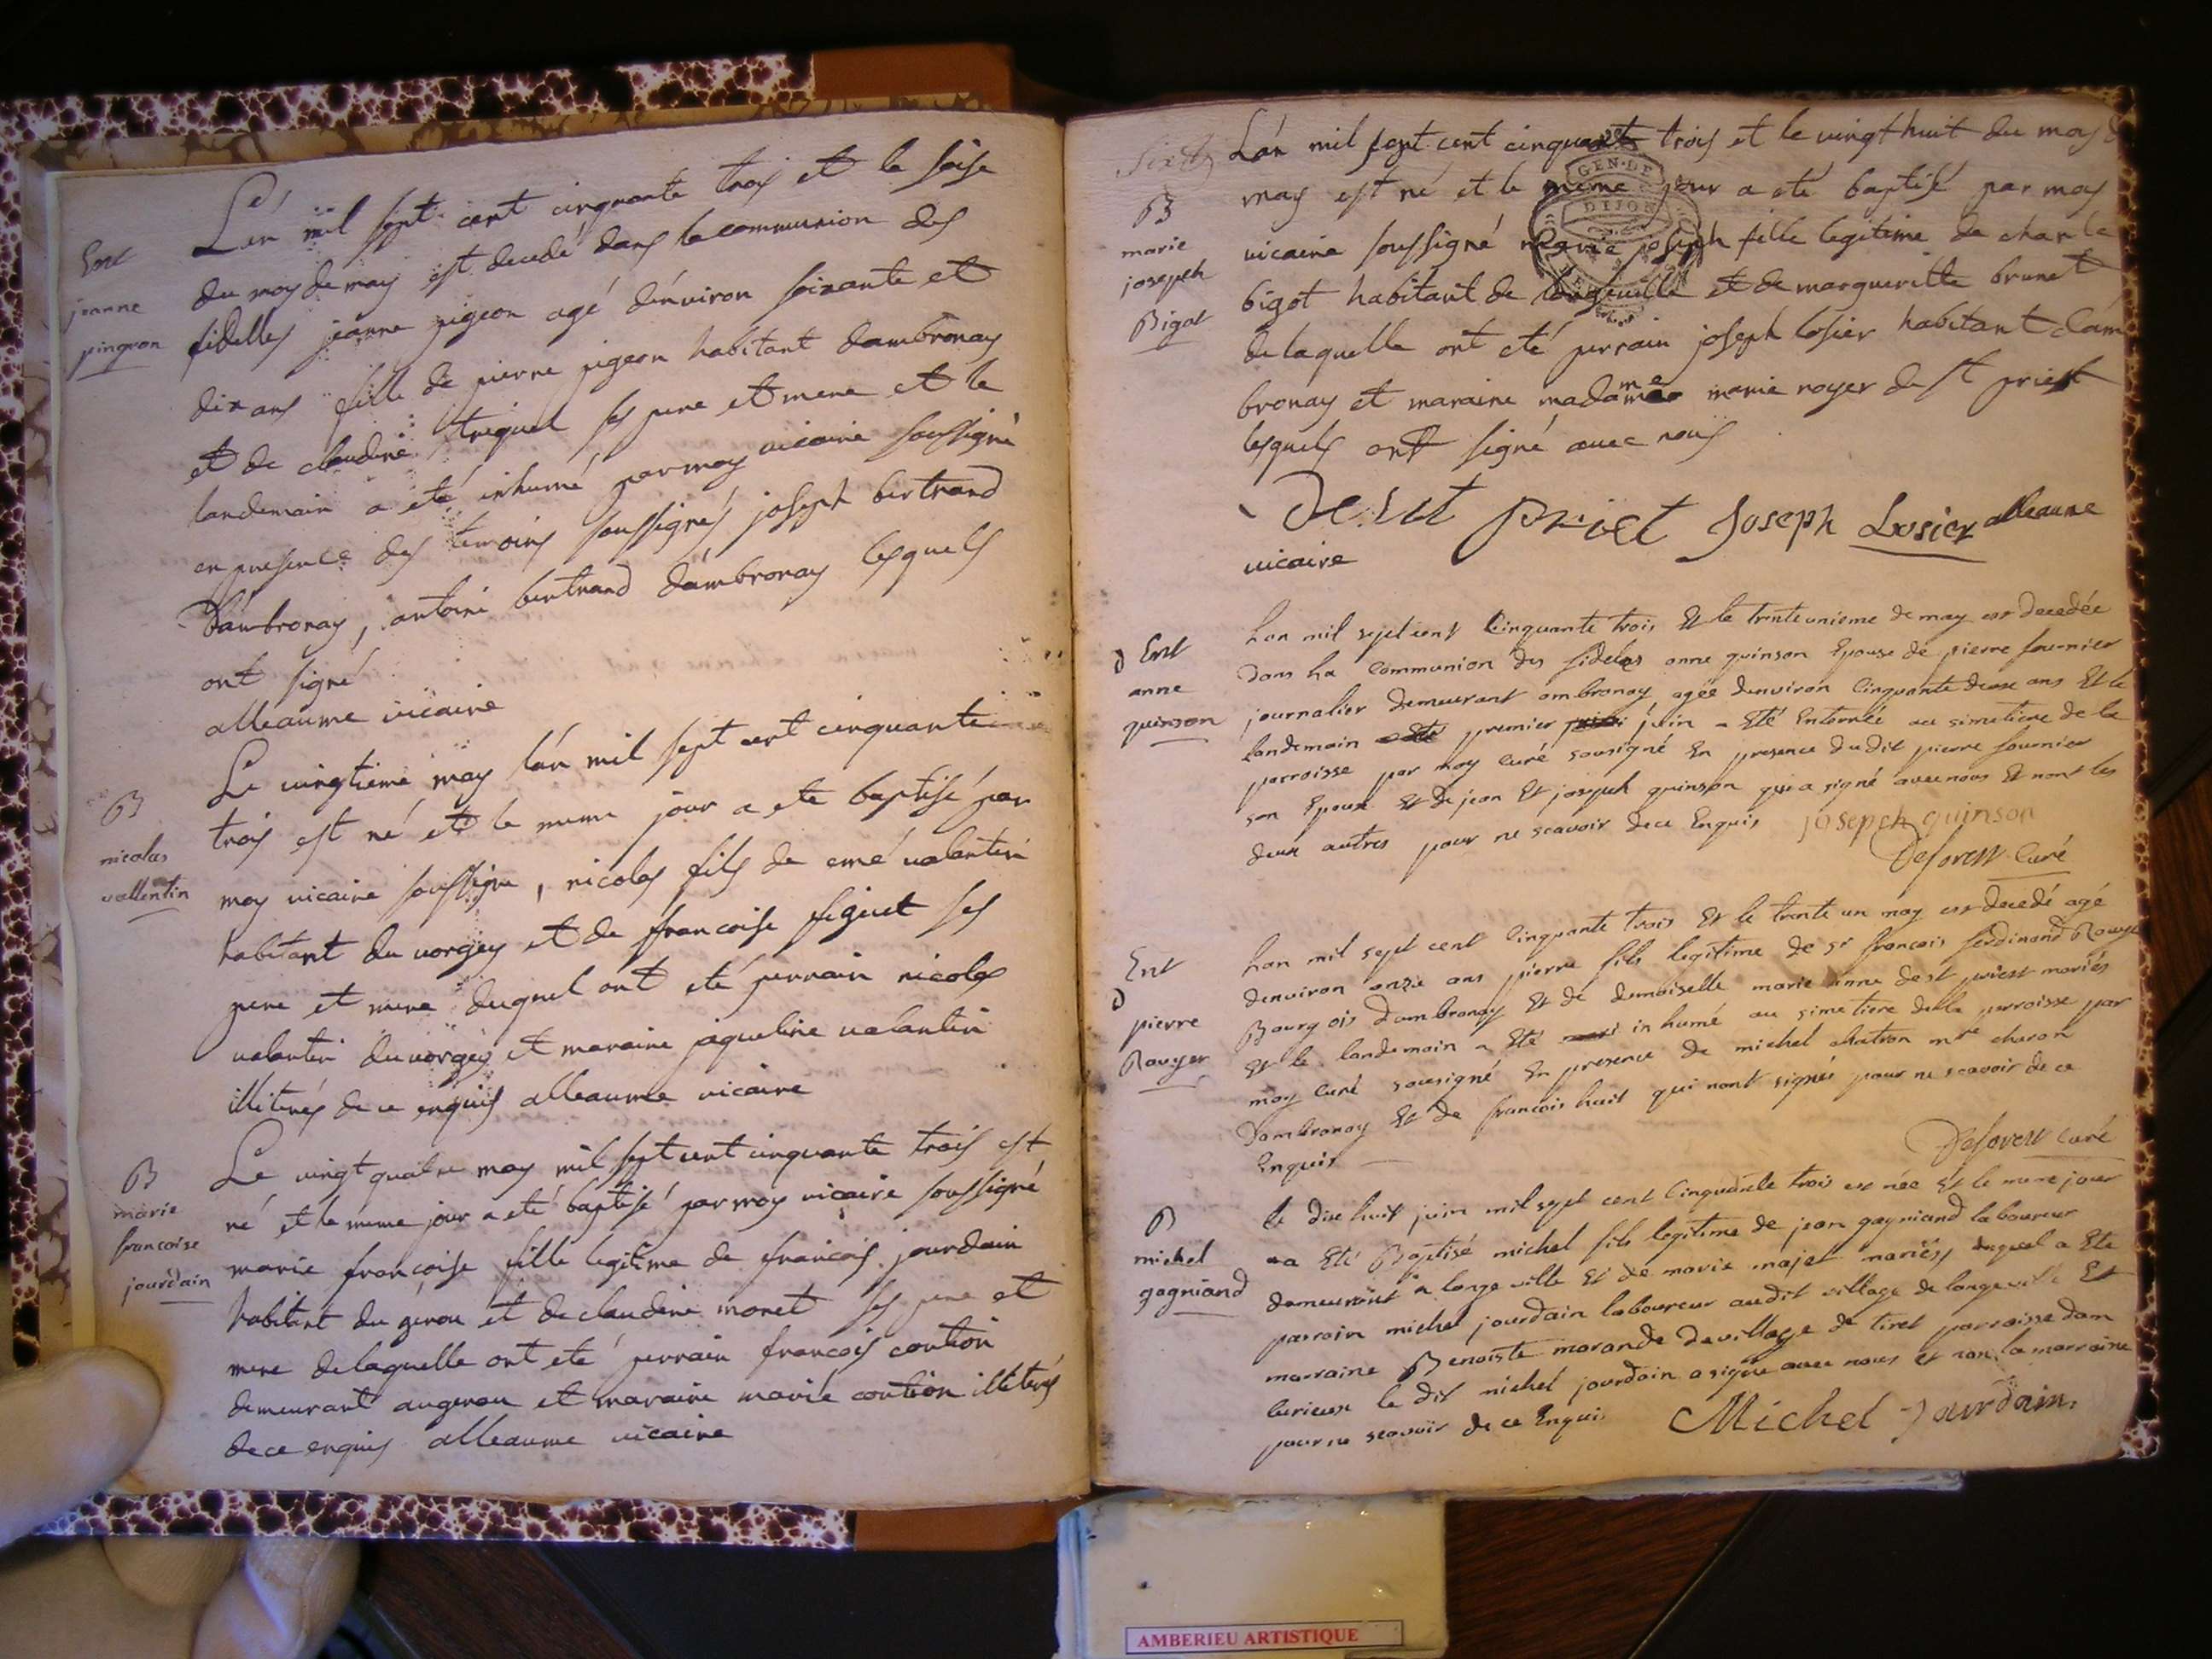 Ent
jeanne
pingeon
L'én mil sept cent cinquante trois et le saise
du moy de may est decedé dans la communion des
fidelles jeanne pigeon agé d'énviron soixante et
dix ans fille de pierre pigeon habitant dambronay
et de claudine triquet ses pere et mere et le
landemain a eté inhumé par moy vicaire soussigné
en presence des temoins soussignés joseph bertrand
Dambronay, antoine bertrand dámbronay lesquels
ont signé
alleaume vicaire
B
nicolas
vallentin
Le vingtieme may lán mil sept cent cinquante
trois est né et le meme jour a ete baptisé par
moy vicaire soussigne, nicolas fils de emé valentin
habitant du vorgey et de francoise figuet ses
pere et mere duquel ont eté perrain nicolas
valentin du vorgey et maraine jaqueline valentin
illiterés de ce enquis alleaume vicaire
B
marie
francoise
jourdain
Le vingt quatre may mil sept cent cinquante trois est
né et le meme jour a eté baptisé par moy vicaire soussigné
marie francoise fille legitime de francois jourdain
habitant du gérou et de claudine monet ses pere et
mere de laquelle ont eté perrain francois contion
demeurant au gerou et maraine marie contion illiterés
de ce enquis alleaume vicaire
B
marie
joseph
Bigot
Lán mil sept cent cinquante trois et le vingt huit du moy d
may est né et le meme jour a eté baptisé par moy
vicaire soussigné marie joseph fille legitime de charle
bigot habitant de longeville et de margueritte brunet
de laquelle ont eté perrain joseph losier habitant dám
bronay et maraine madame marie royer de st priest
lesquels ont signé avec nous
De st Priet Joseph Losier alleaume
vicaire
GEN. DE
DIJON
Ent
anne
quinson
Lan mil sept cent Cinquante trois Et le trente unieme de may est decedée
dans la Communion des fideles anne quinson Epouse de pierre fournier
journalier demeurant ambronay agée denviron Cinquante deux ans Et le
landemain premier juin a Eté Enterrée au simetiere de la
parroisse par moy Curé sousigné En presence dudit pierre fournier
son Epoux Et de jean Et joseph quinson qui a signé avec nous Et non les
deux autres pour ne scavoir de ce Enquis joseph quinson
Deforest Curé
Ent
pierre
Rouyer
Lan mil sept cent Cinquante trois Et le trente un may est decedé agé
denviron onze ans pierre fils legitime de sr francois ferdinand Rouye
Bourgois dambronay Et de demoiselle marie anne de st priest mariés
Et le landemain a Eté inhumé au simetiere de la parroisse par
moy Curé sousigné En presence de michel chatron mre charon
Dambronay Et de francois huit qui nont signés pour ne scavoir de ce
Enquis
Deforest curé
B
michel
gagniand
le dix huit juin mil sept cent Cinquante trois est née Et le meme jour
a Eté Baptisé michel fils legitime de jean gagniand laboureur
demeurant a longe ville Et de marie majet mariés, duquel a Ete
parrain michel jourdain laboureur audit village de longeville Et
marraine Benoiste morande du village de tiret parroisse dam
le dit michel jourdain a signé avec nous et non la marraine
pour ne scavoir de ce Enquis Michel Jourdain.
AMBERIEU ARTISTIQUE